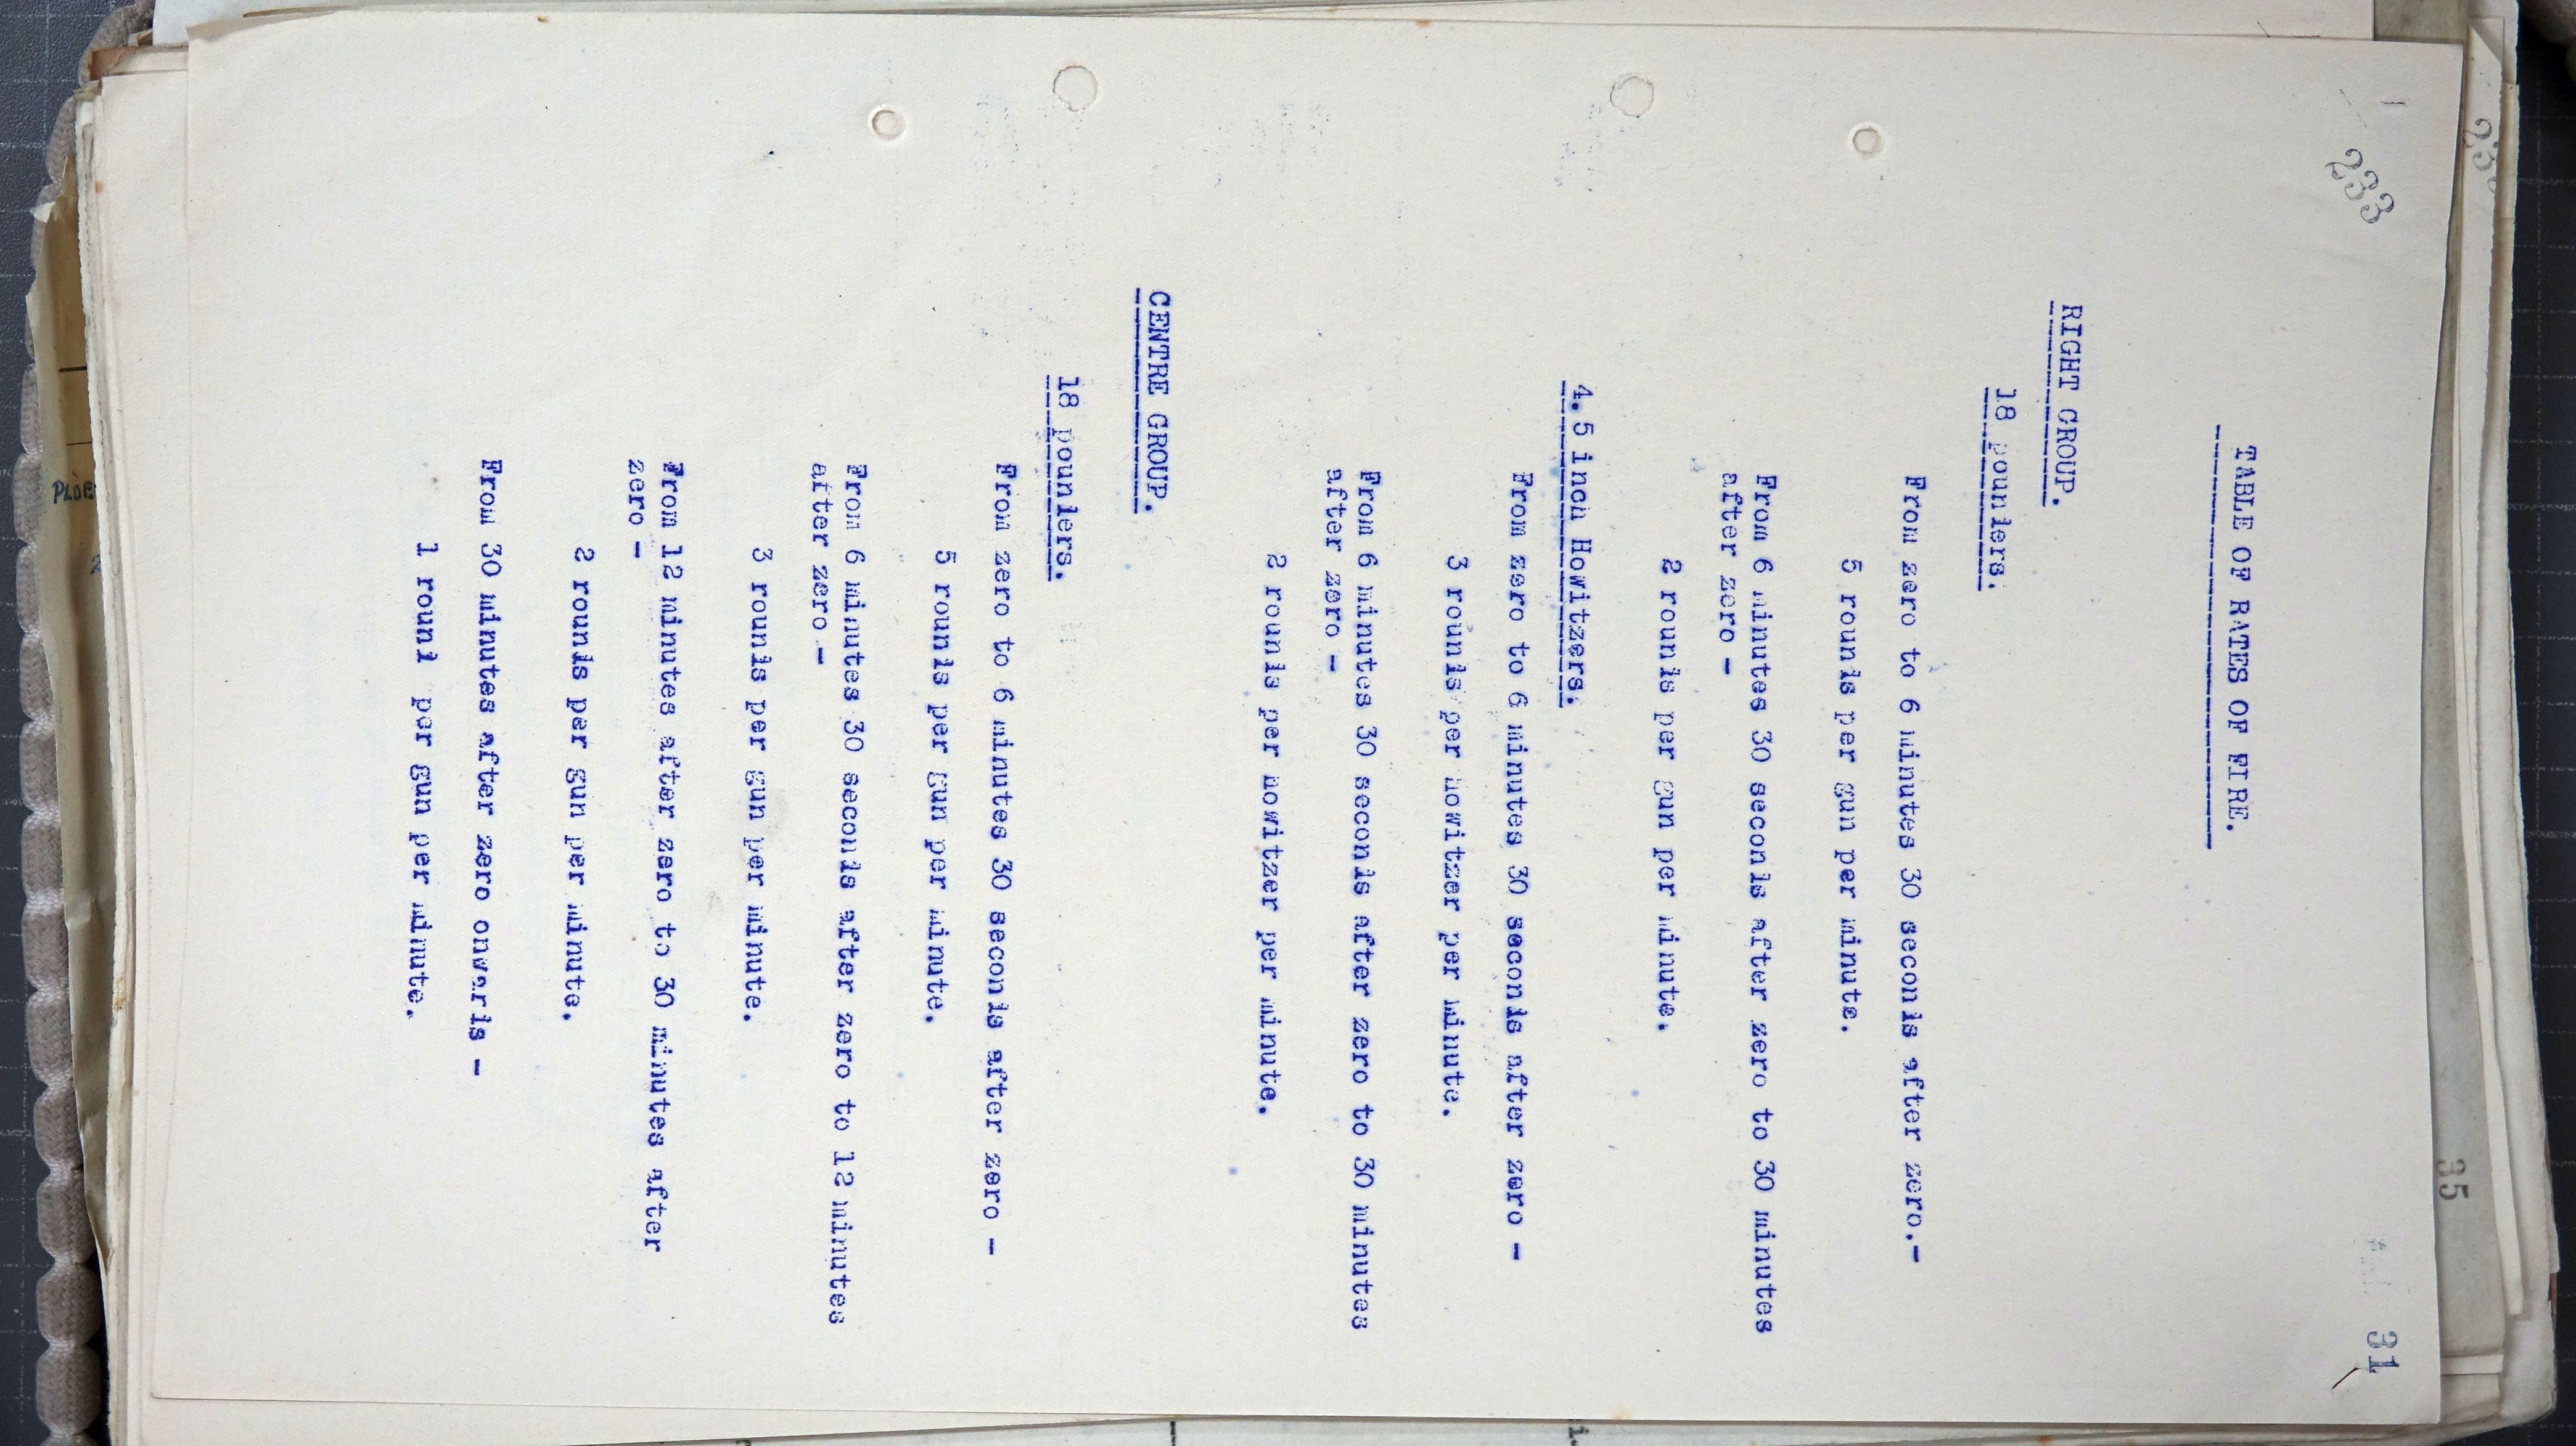 233
31
TABLE OF RATES OF FIRE.
RIGHT GROUP.
18 pounders.
From zero to 6 minutes 30 seconds after zero.-
5 rounds per gun per minute.
From 6 minutes 30 seconds after zero to 30 minutes
after zero -
2 rounds per gun per minute.
4.5 inch Howitzers.
From zero to 6 minutes 30 seconds after zero -
3 rounds per howitzer per minute.
From 6 minutes 30 seconds after zero to 30 minutes
after zero -
2 rounds per howitzer per minute.
CENTRE GROUP.
18 pounders.
From zero to 6 minutes 30 seconds after zero -
5 rounds per gun per minute.
From 6 minutes 30 seconds after zero to 12 minutes
after zero -
3 rounds per gun per minute.
From 12 minutes after zero to 30 minutes after
zero -
2 rounds per gun per minute.
From 30 minutes after zero onwards -
1 round per gun per minute.
35